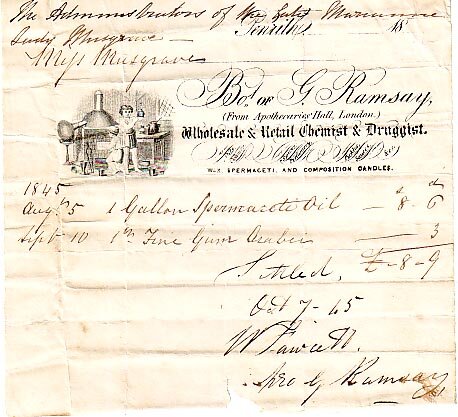 The Administrators of the late Marianne
Penrith, 18
Lady Musgrave
Miss Musgrave
Bot. of G. Ramsay,
(From Apothecaries' Hall, London.)
Wholesale & Retail Chemist & Druggist.
WAX, SPERMACETI, AND COMPOSITION CANDLES.
1845
s d
Augt 5 1 Gallon Spermacete Oil — 8 - 6
Sept 10 1 Fine Gum Arabic — 3
Settled, £ - 8 - 9
Oct 7 - 45
W Fawcett
pro G Ramsay